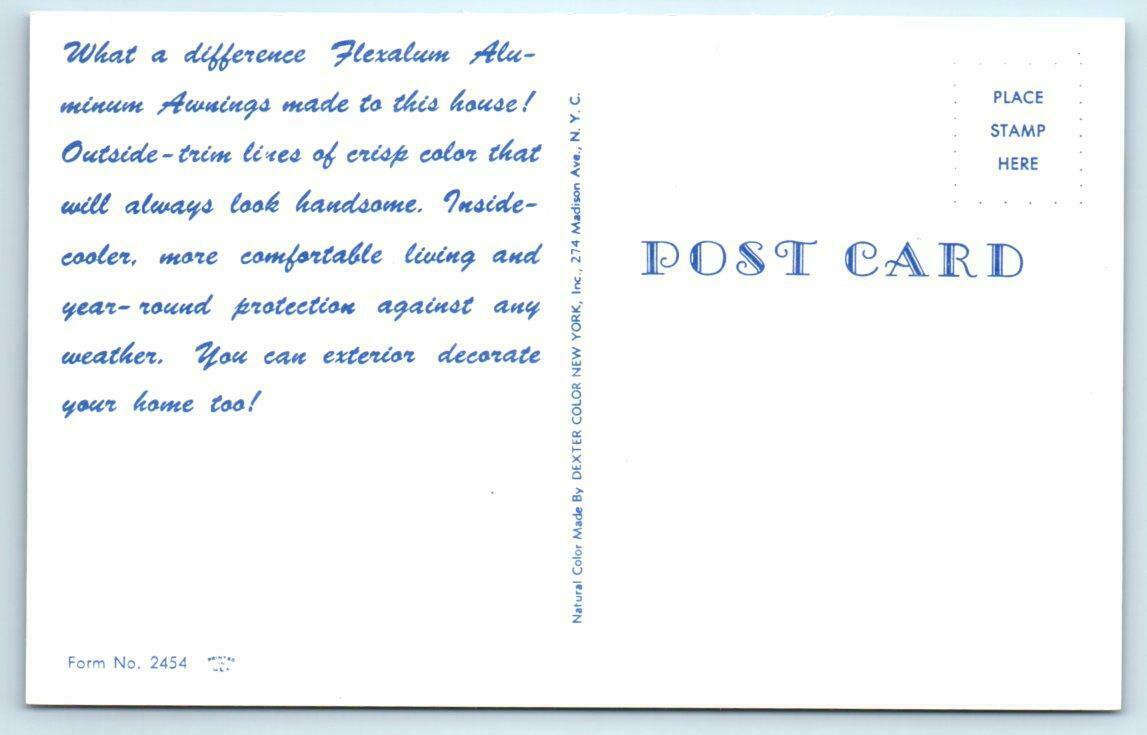 What a difference Flexalum Alu-
minum Awnings made to this house!
Outside-trim lines of crisp color that
will always look handsome. Inside-
cooler, more comfortable living and
year-round protection against any
weather. You can exterior decorate
your home too!
Form No. 2454
PRINTED
IN
U.S.A.
Natural Color Made By DEXTER COLOR NEW YORK, Inc., 274 Madison Ave., N. Y. C.
PLACE
STAMP
HERE
POST CARD